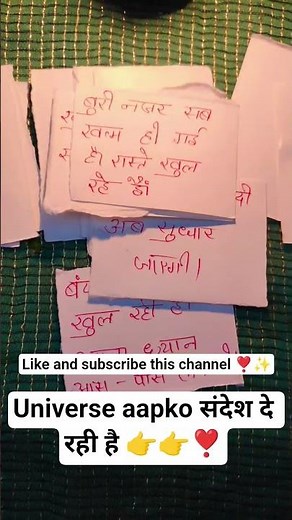 बुरी नज़र सब
खत्म हो गई
है। रास्ते खुल
रहे हैं
अब सुधार
जाएगी।
खुल रही है
ध्यान
आस-पास
Like and subscribe this channel ❣️✨
Universe aapko संदेश दे
रही है 👉👉❣️